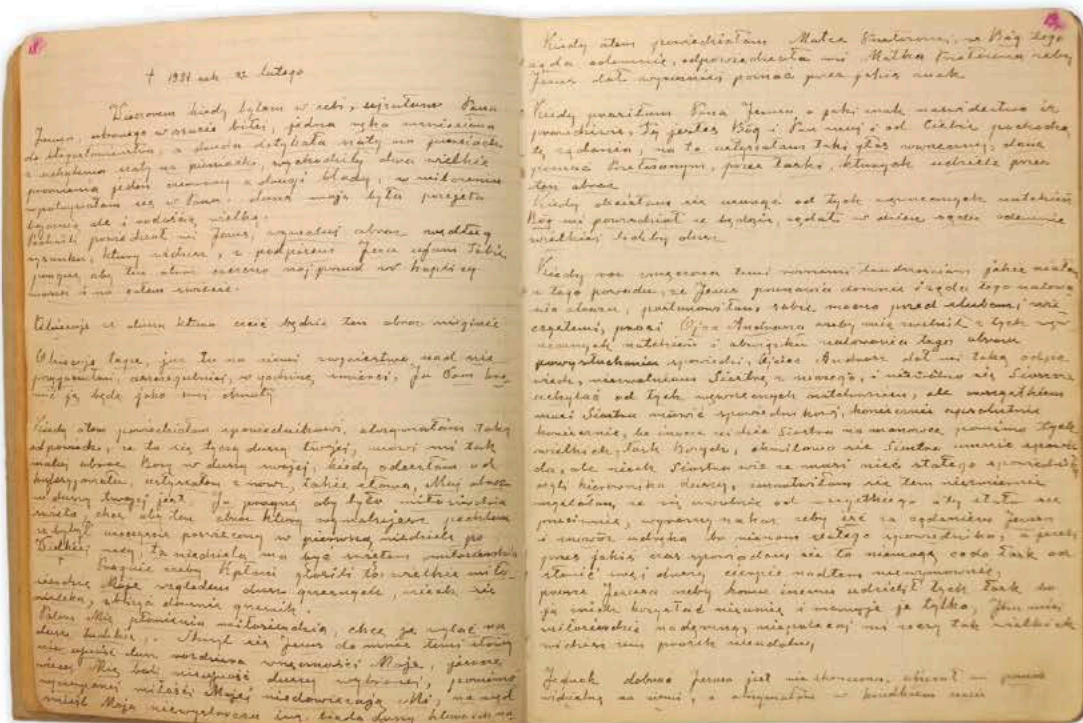 18
† 1931 rok 22 lutego
Wieczorem kiedy byłam w celi, ujrzałam Pana
Jezusa, ubranego w szacie białej, jedna ręka wzniesiona
do błogosławieństwa, a druga dotykała szaty na piersiach,
z uchylenia szaty na piersiach, wychodziły dwa wielkie
promienie jeden czerwony a drugi blady, w milczeniu
wpatrywałam się w Pana, dusza moja była przejęta
bojaźnią ale i radością wielką.
Po chwili powiedział mi Jezus, wymaluj obraz według
rysunku, który widzisz, z podpisem Jezu ufam Tobie,
pragnę, aby ten obraz czczono najpierw w kaplicy
waszej i na całym świecie.
Obiecuję, że dusza która czcić będzie ten obraz nie zginie
Obiecuję także, już tu na ziemi zwycięstwo, nad nie
przyjaciółmi, a szczególniej, w godzinę śmierci, Ja Sam bro-
nić ją będę jako swej chwały.
Kiedy o tem powiedziałam spowiednikowi, otrzymałam taką
odpowiedź, że to się tyczy duszy twojej, mówi mi tak
maluj obraz Boży w duszy swojej, kiedy odeszłam od
konfesjonału, usłyszałam z nowu, takie słowa, Mój obraz
w duszy twojej jest. Ja pragnę aby było miłosierdzia
święto, chcę aby ten obraz który wymalujesz pędzlem
żeby był uroczyście poświęcony w pierwszą niedzielę po
Wielkiej nocy, ta niedziela ma być świętem miłosierdzia
† Pragnę żeby kapłani głosili to wielkie miło-
sierdzie Moje względem dusz grzesznych, niech się
nie lęka, zbliżyć do mnie grzesznik.
Palą Mię płomienie miłosierdzia, chcę je wylać na
dusze ludzkie. Skarżył się Jezus do mnie temi słowy
nie ufność dusz rozdziera wnętrzności Moje, jeszcze
więcej Mię boli nieufność duszy wybranej, pomimo
niewyczerpanej miłości Mojej niedowierzają Mi, nawet
śmierć Moja niewystarcza im, biada duszy która ich
19
Kiedy o tem powiedziałam Matce Przełożonej, że Bóg tego
żąda odemnie, odpowiedziała mi Matka Przełożona żeby
Jezus dał wyraźniej poznać przez jakiś znak
Kiedy prosiłam Pana Jezusa o jaki znak na świadectwo że
prawdziwie, Ty jesteś Bóg i Pan mój i od Ciebie pochodzą
te żądania, na to usłyszałam taki głos wewnętrzny, dam
poznać Przełożonym, przez łaski, których udzielę przez
ten obraz
Kiedy chciałam się usunąć od tych wewnętrznych natchnień
Bóg mi powiedział że będzie, żądał w dzień sądu odemnie
wielkiej liczby dusz
Kiedy raz zmęczona temi różnemi trudnościami jakie miałam
z tego powodu, że Jezus przemawia do mnie i żąda tego malowa
nia obrazu, postanowiłam sobie mocno przed ślubami, wie
czystemi, prosić Ojca Andrasza żeby mię zwolnił z tych wew
nętrznych natchnień i obowiązku malowania tego obrazu
po wysłuchaniu spowiedzi, Ojciec Andrasz dał mi taką odpo
wiedź, niezwalniam Siostrę z niczego, i niewolno się Siostrze
uchylać od tych wewnętrznych natchnień, ale o wszystkiem
musi Siostra mówić spowiednikowi, koniecznie absolutnie
koniecznie, bo inaczej zejdzie Siostra na manowce pomimo tych
wielkich, łask Bożych, chwilowo się Siostra u mnie spowia
da, ale niech Siostra wie że musi mieć stałego spowiednika
czyli kierownika duszy, zmartwiłam się tem niezmiernie
myślałam, że się uwolnię od wszystkiego a tu stało się
przeciwnie, wyraźny nakaz żeby iść za żądaniem Jezusa
i znowuż udręka bo nie mam stałego spowiednika, a jeżeli
przez jakiś czas spowiadam się to niemogę co do łask od
słonić swej duszy cierpię nad tem niewymownie,
proszę Jezusa żeby komu innemu udzielił tych łask bo
ja niech korzystać nieumię i marnuję je tylko, Jezu miej
miłosierdzie nademną, niepolecaj mi rzeczy tak wielkich
widzisz żem proszek nieudolny,
Jednak dobroć Jezusa jest nieskończona, obiecał mi pomoc
widzialną na ziemi, i otrzymałam w krótkim czasie